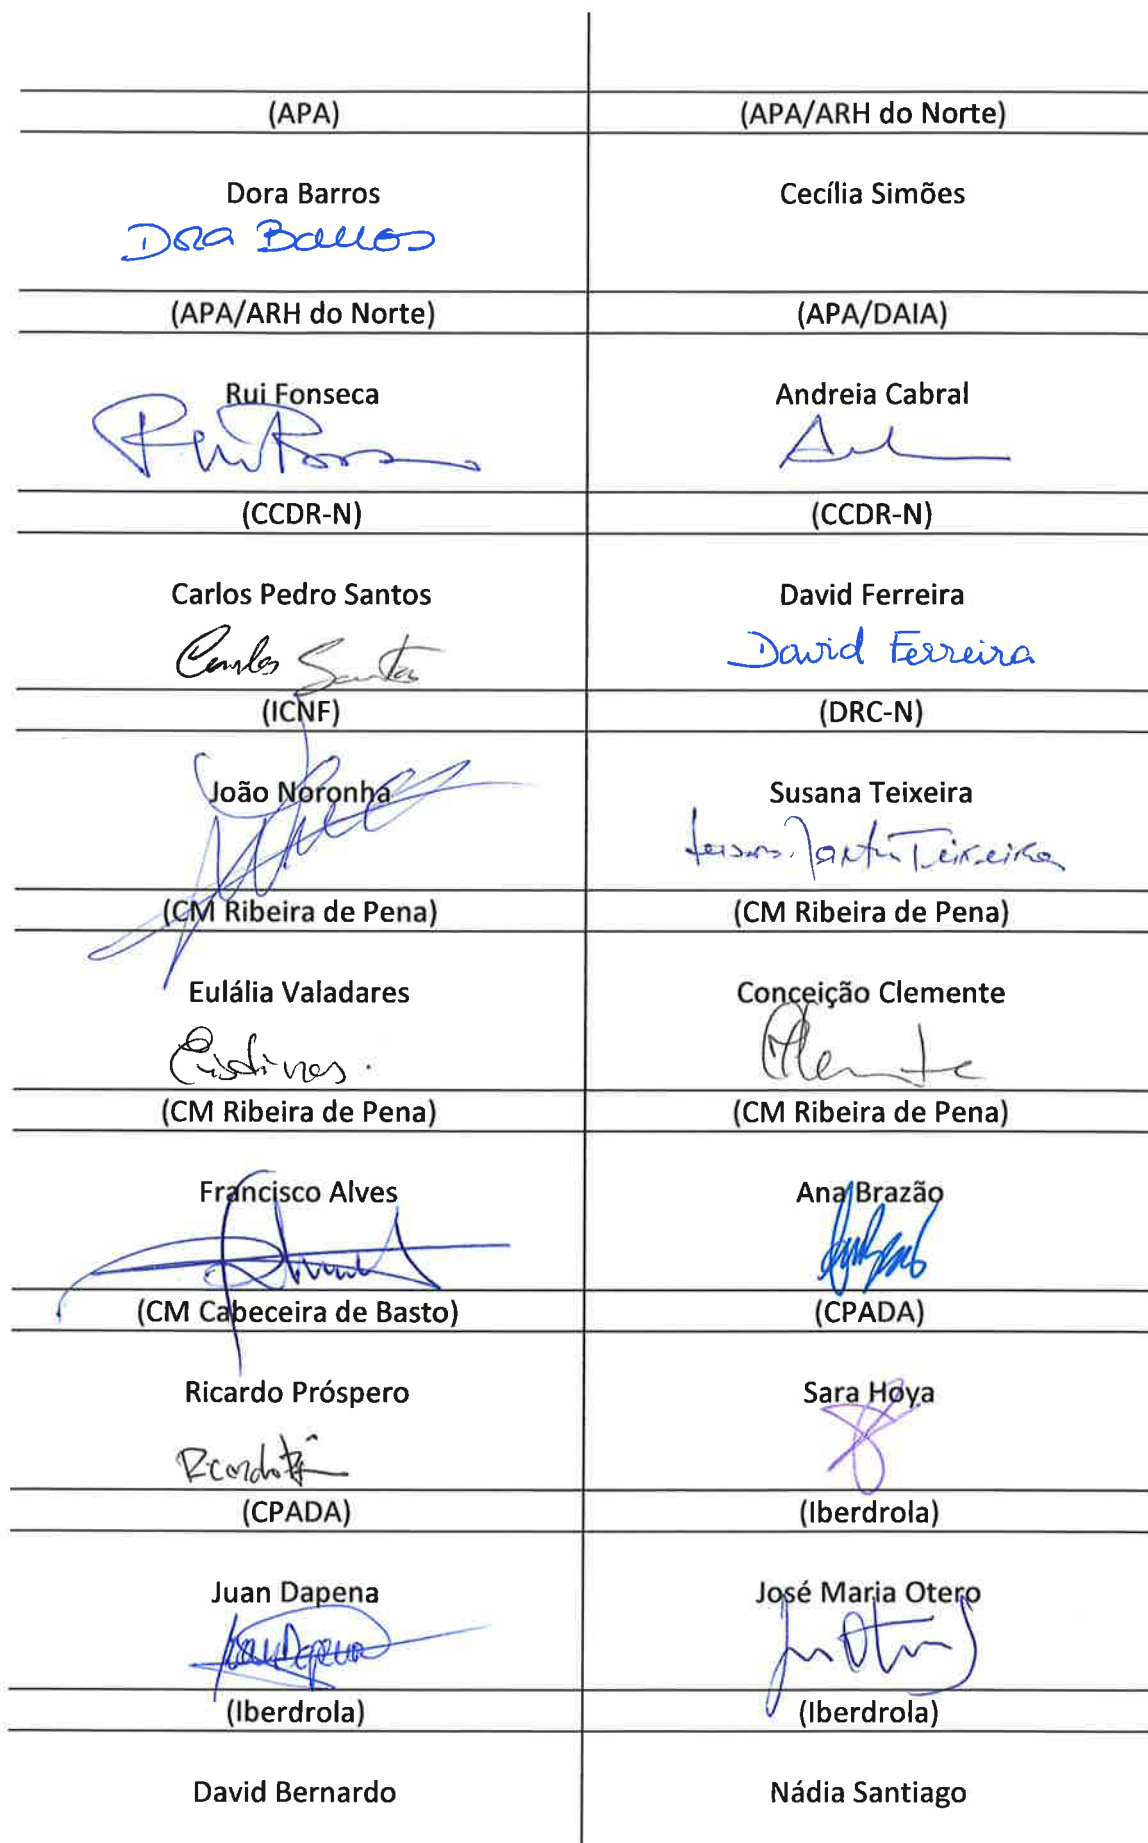 (APA) (APA/ARH do Norte)
Dora Barros Cecília Simões
Dora Barros
(APA/ARH do Norte) (APA/DAIA)
Rui Fonseca Andreia Cabral
(CCDR-N) (CCDR-N)
Carlos Pedro Santos David Ferreira
Carlos Santos David Ferreira
(ICNF) (DRC-N)
João Noronha Susana Teixeira
Teixeira
(CM Ribeira de Pena) (CM Ribeira de Pena)
Eulália Valadares Conceição Clemente
Clemente
(CM Ribeira de Pena) (CM Ribeira de Pena)
Francisco Alves Ana Brazão
(CM Cabeceira de Basto) (CPADA)
Ricardo Próspero Sara Hoya
Ricardo
(CPADA) (Iberdrola)
Juan Dapena José Maria Otero
Juan Dapena
(Iberdrola) (Iberdrola)
David Bernardo Nádia Santiago